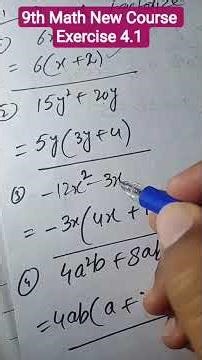 9th Math New Course
Exercise 4.1
= 6(x+2)
2) 15y² + 20y
= 5y(3y+4)
③ -12x² - 3x
= -3x(4x +
④ 4a²b + 8ab
= 4ab(a +